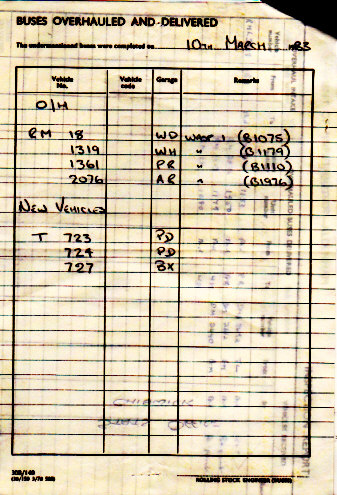 BUSES OVERHAULED AND DELIVERED
The undermentioned buses were completed on 10TH MARCH 1983
Vehicle No. Vehicle code Garage Remarks
O/H
RM 18 WD (B1075)
1319 WH " (B1179)
1361 PR " (B1110)
2076 AR " (B1976)
NEW VEHICLES
T 723 PD
724 PD
727 BX
CHISWICK
ROLLING STOCK ENGINEER (BUSES)